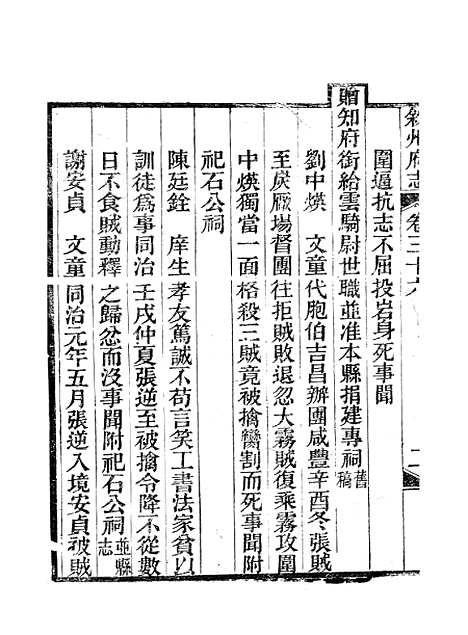 敘州府志 卷三十六 二
圍逼抗志不屈投岩身死事聞
贈知府銜給雲騎尉世職並准本縣捐建專祠舊稿
劉中煐 文童代胞伯吉昌辦團咸豐辛酉冬張賊
至炭廠場督團往拒賊敗退忽大霧賊復乘霧攻圍
中煐獨當一面格殺三賊竟被擒臠割而死事聞附
祀石公祠
陳廷銓 庠生孝友篤誠不苟言笑工書法家貧以
訓徒爲事同治壬戌仲夏張逆至被擒令降不從數
日不食賊動釋之歸忿而沒事聞附祀石公祠並縣志
謝安貞 文童同治元年五月張逆入境安貞被賊